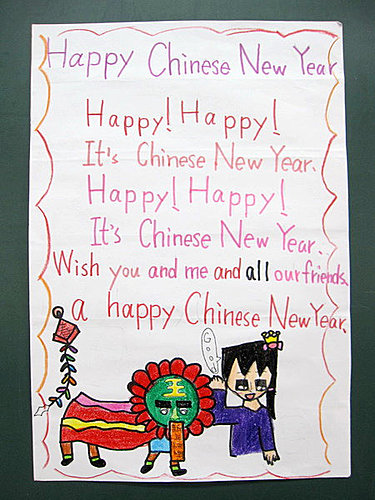 Happy Chinese New Year
Happy! Happy!
It's Chinese New Year.
Happy! Happy!
It's Chinese New Year.
Wish you and me and all our friends
a happy Chinese New Year.
Good!
王